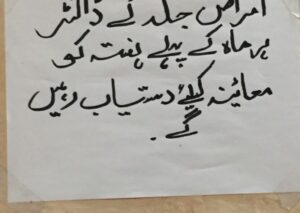 امراض جلد کے ڈاکٹر
ہر ماہ کے پہلے ہفتہ کو
معائینہ کیلئے دستیاب رہیں
گے۔